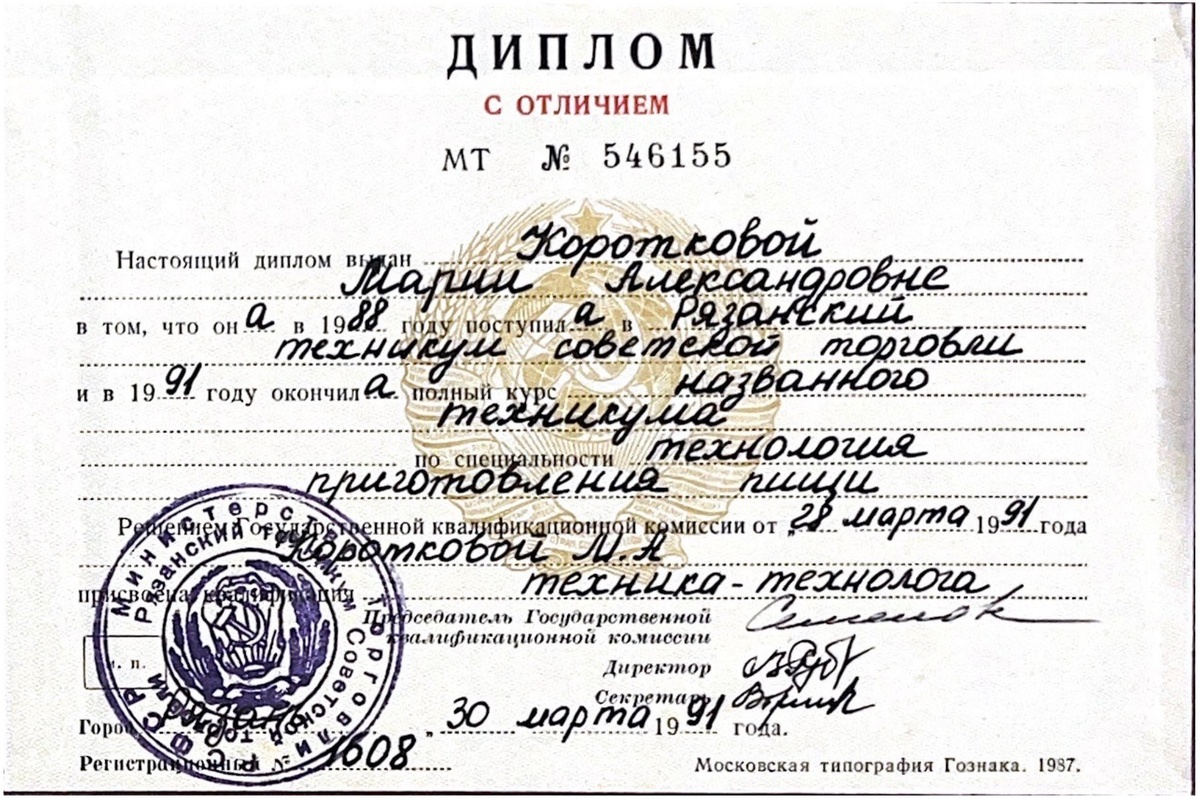 ДИПЛОМ
С ОТЛИЧИЕМ
МТ № 546155
Настоящий диплом выдан Коротковой
Марии Александровне
в том, что он а в 1988 году поступил а в Рязанский
техникум советской торговли
и в 1991 году окончил а полный курс названного
техникума
по специальности технология
приготовления пищи
Решением Государственной квалификационной комиссии от „28 марта 1991 года
Коротковой М.А
присвоена квалификация техника-технолога
Председатель Государственной
квалификационной комиссии
Директор
Секретарь
м. п.
Город Рязань „30 марта 1991 года.
Регистрационный № 1608
Московская типография Гознака. 1987.
Министерство торговли РСФСР
Рязанский техникум Советской торговли